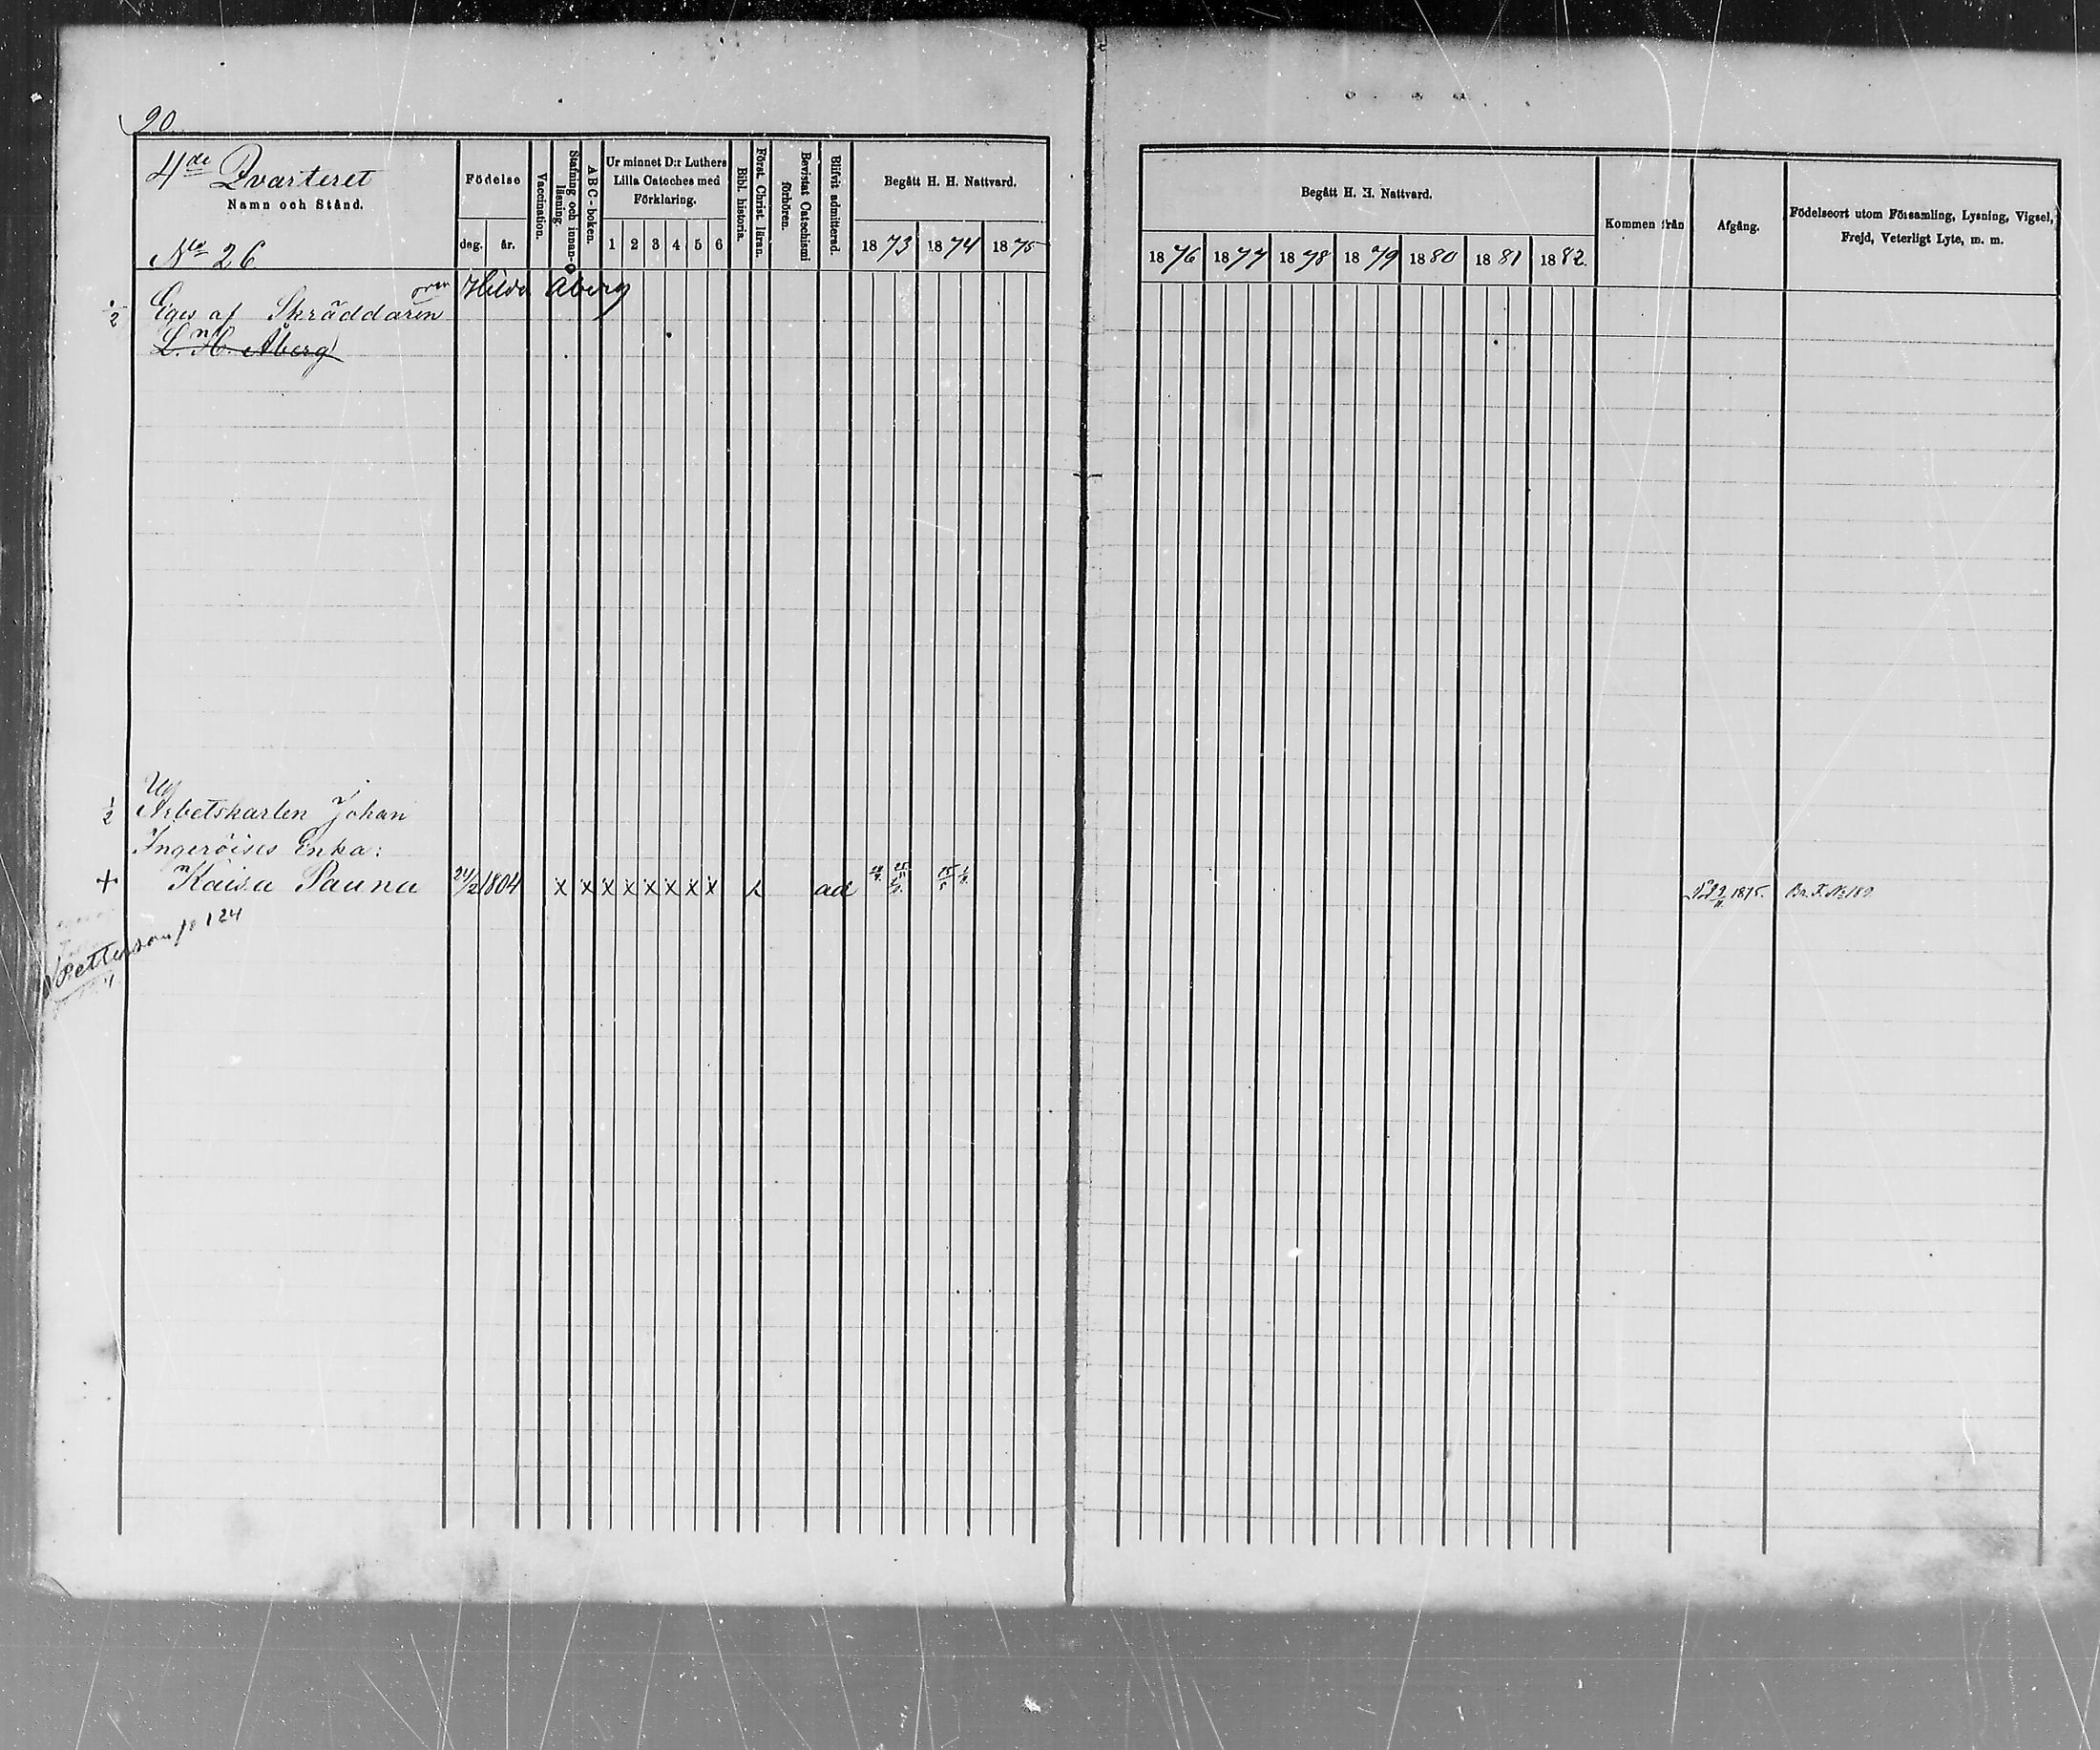 90.
4de Qvarteret
Namn och Stånd.
No 26
Födelse
dag. år.
Vaccination.
Stafning och innan-läsning.
ABC-boken.
Ur minnet D:r Luthers
Lilla Cateches med
Förklaring.
1 2 3 4 5 6
Bibl. historia.
Först. Christ. läran.
Bevistat Catechismi
förhören.
Blifvit admitterad.
Begått H. H. Nattvard.
1873 1874 1875
Begått H. H. Nattvard.
1876 1877 1878 1879 1880 1881 1882.
Kommen från
Afgång.
Födelseort utom Församling, Lysning, Vigsel,
Frejd, Veterligt Lyte, m. m.
Hilda Åberg
1/2 Eges af Skräddaren
L. H. Åberg
1/2 Arbetskarlen Johan
Ingeröises Enka:
+ Kaisa Sauna 24/2 1804 x x x x x x x x ad 1875.
Petterson p 124